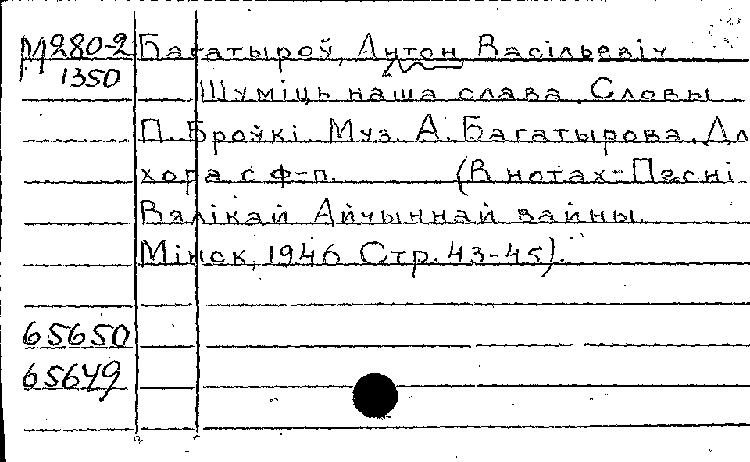 М280-2 Багатыроў, Антон Васільевіч
1350 Шуміць наша слава. Словы
П. Броўкі. Муз. А. Багатырова. Дл
хора с ф-п. (В нотах-Песні
Вялікай Айчыннай вайны.
Мінск, 1946 Стр. 43-45).
65650
65649